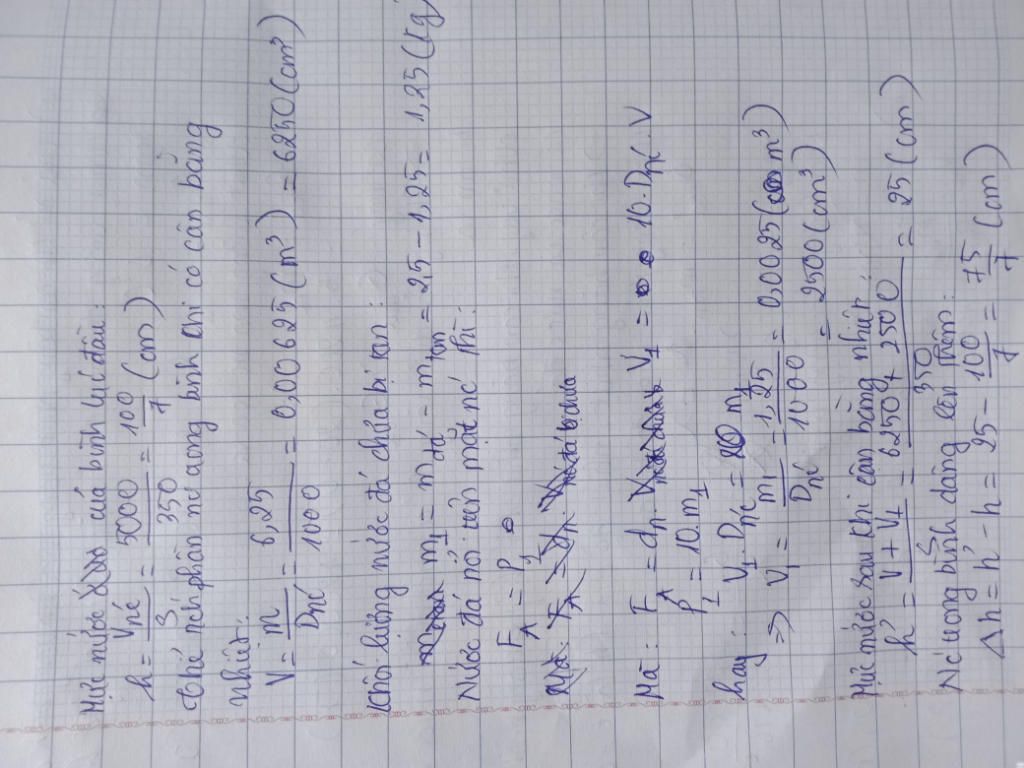 Mực nước của bình lúc đầu:
h = Vnć/S = 5000/350 = 100/7 (cm)
Thể tích phần nć trong bình khi có cân bằng
nhiệt:
V = m/Dnć = 6,25/1000 = 0,00625 (m³) = 6250 (cm³)
Khối lượng nước đá chưa bị tan:
m₁ = mđá - mtan = 2,5 - 1,25 = 1,25 (kg)
Nước đá nổi trên mặt nć thì:
F_A = P₁
Mà: F_A = dn. V₁ = 10. Dnć. V
P₁ = 10. m₁
hay: V₁. Dnć = m₁
=> V₁ = m₁/Dnć = 1,25/1000 = 0,0025 (m³)
= 2500 (cm³)
Mực nước sau khi cân bằng nhiệt:
h' = (V + V₁)/S = (6250 + 2500)/350 = 25 (cm)
Nć trong bình dâng lên thêm:
Δh = h' - h = 25 - 100/7 = 75/7 (cm)